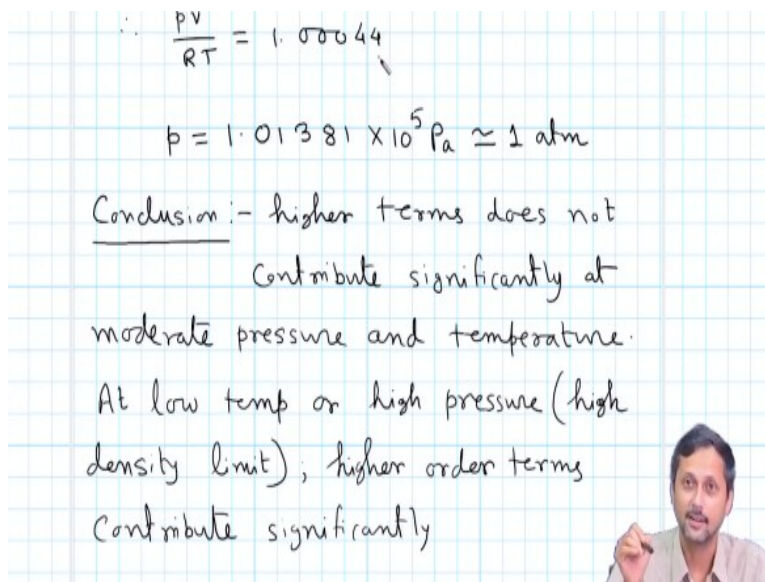 ∴ pV/RT = 1.00044
p = 1.01381 × 10⁵ Pa ≃ 1 atm
Conclusion :- higher terms does not
contribute significantly at
moderate pressure and temperature.
At low temp or high pressure (high
density limit), higher order terms
contribute significantly